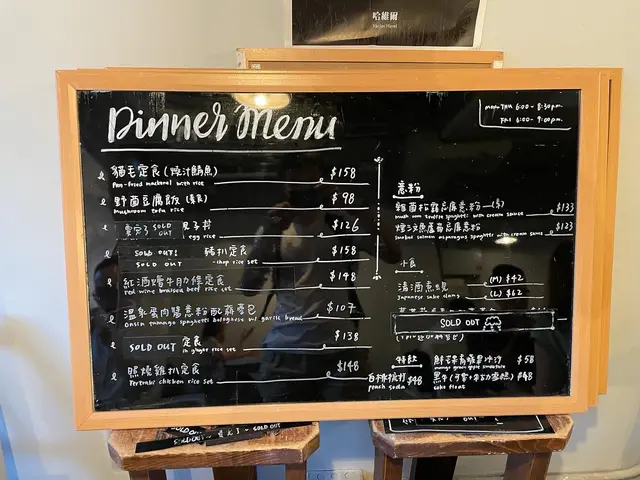 哈維爾
Dinner Menu
Mon-Thu 6:00 - 8:30pm
Fri 6:00 - 9:00pm
貓毛定食 (燒汁鯖魚) $158
Pan-fried mackerel with rice
野菌豆腐飯 (素食) $98
Mushroom tofu rice
賣完了 SOLD OUT $126
egg rice
SOLD OUT! 豬扒定食 $158
SOLD OUT -chop rice set
紅酒燴牛肋條定食 $148
red wine braised beef rice set
溫泉蛋肉醬意粉配蒜蓉包 $107
Onsen tamago spaghetti bolognese w/ garlic bread
SOLD OUT 定食 $138
rice set
照燒雞扒定食 $148
Teriyaki chicken rice set
意粉
忌廉意粉 $133
spaghetti with cream sauce
煙三文魚蘆筍忌廉意粉 $123
Smoked salmon asparagus spaghetti with cream sauce
小食
清酒煮蜆 (M) $42
Japanese sake clams (L) $62
SOLD OUT
特飲
$58
白桃梳打 $48
peach soda
$48
coke float
SOLD OUT